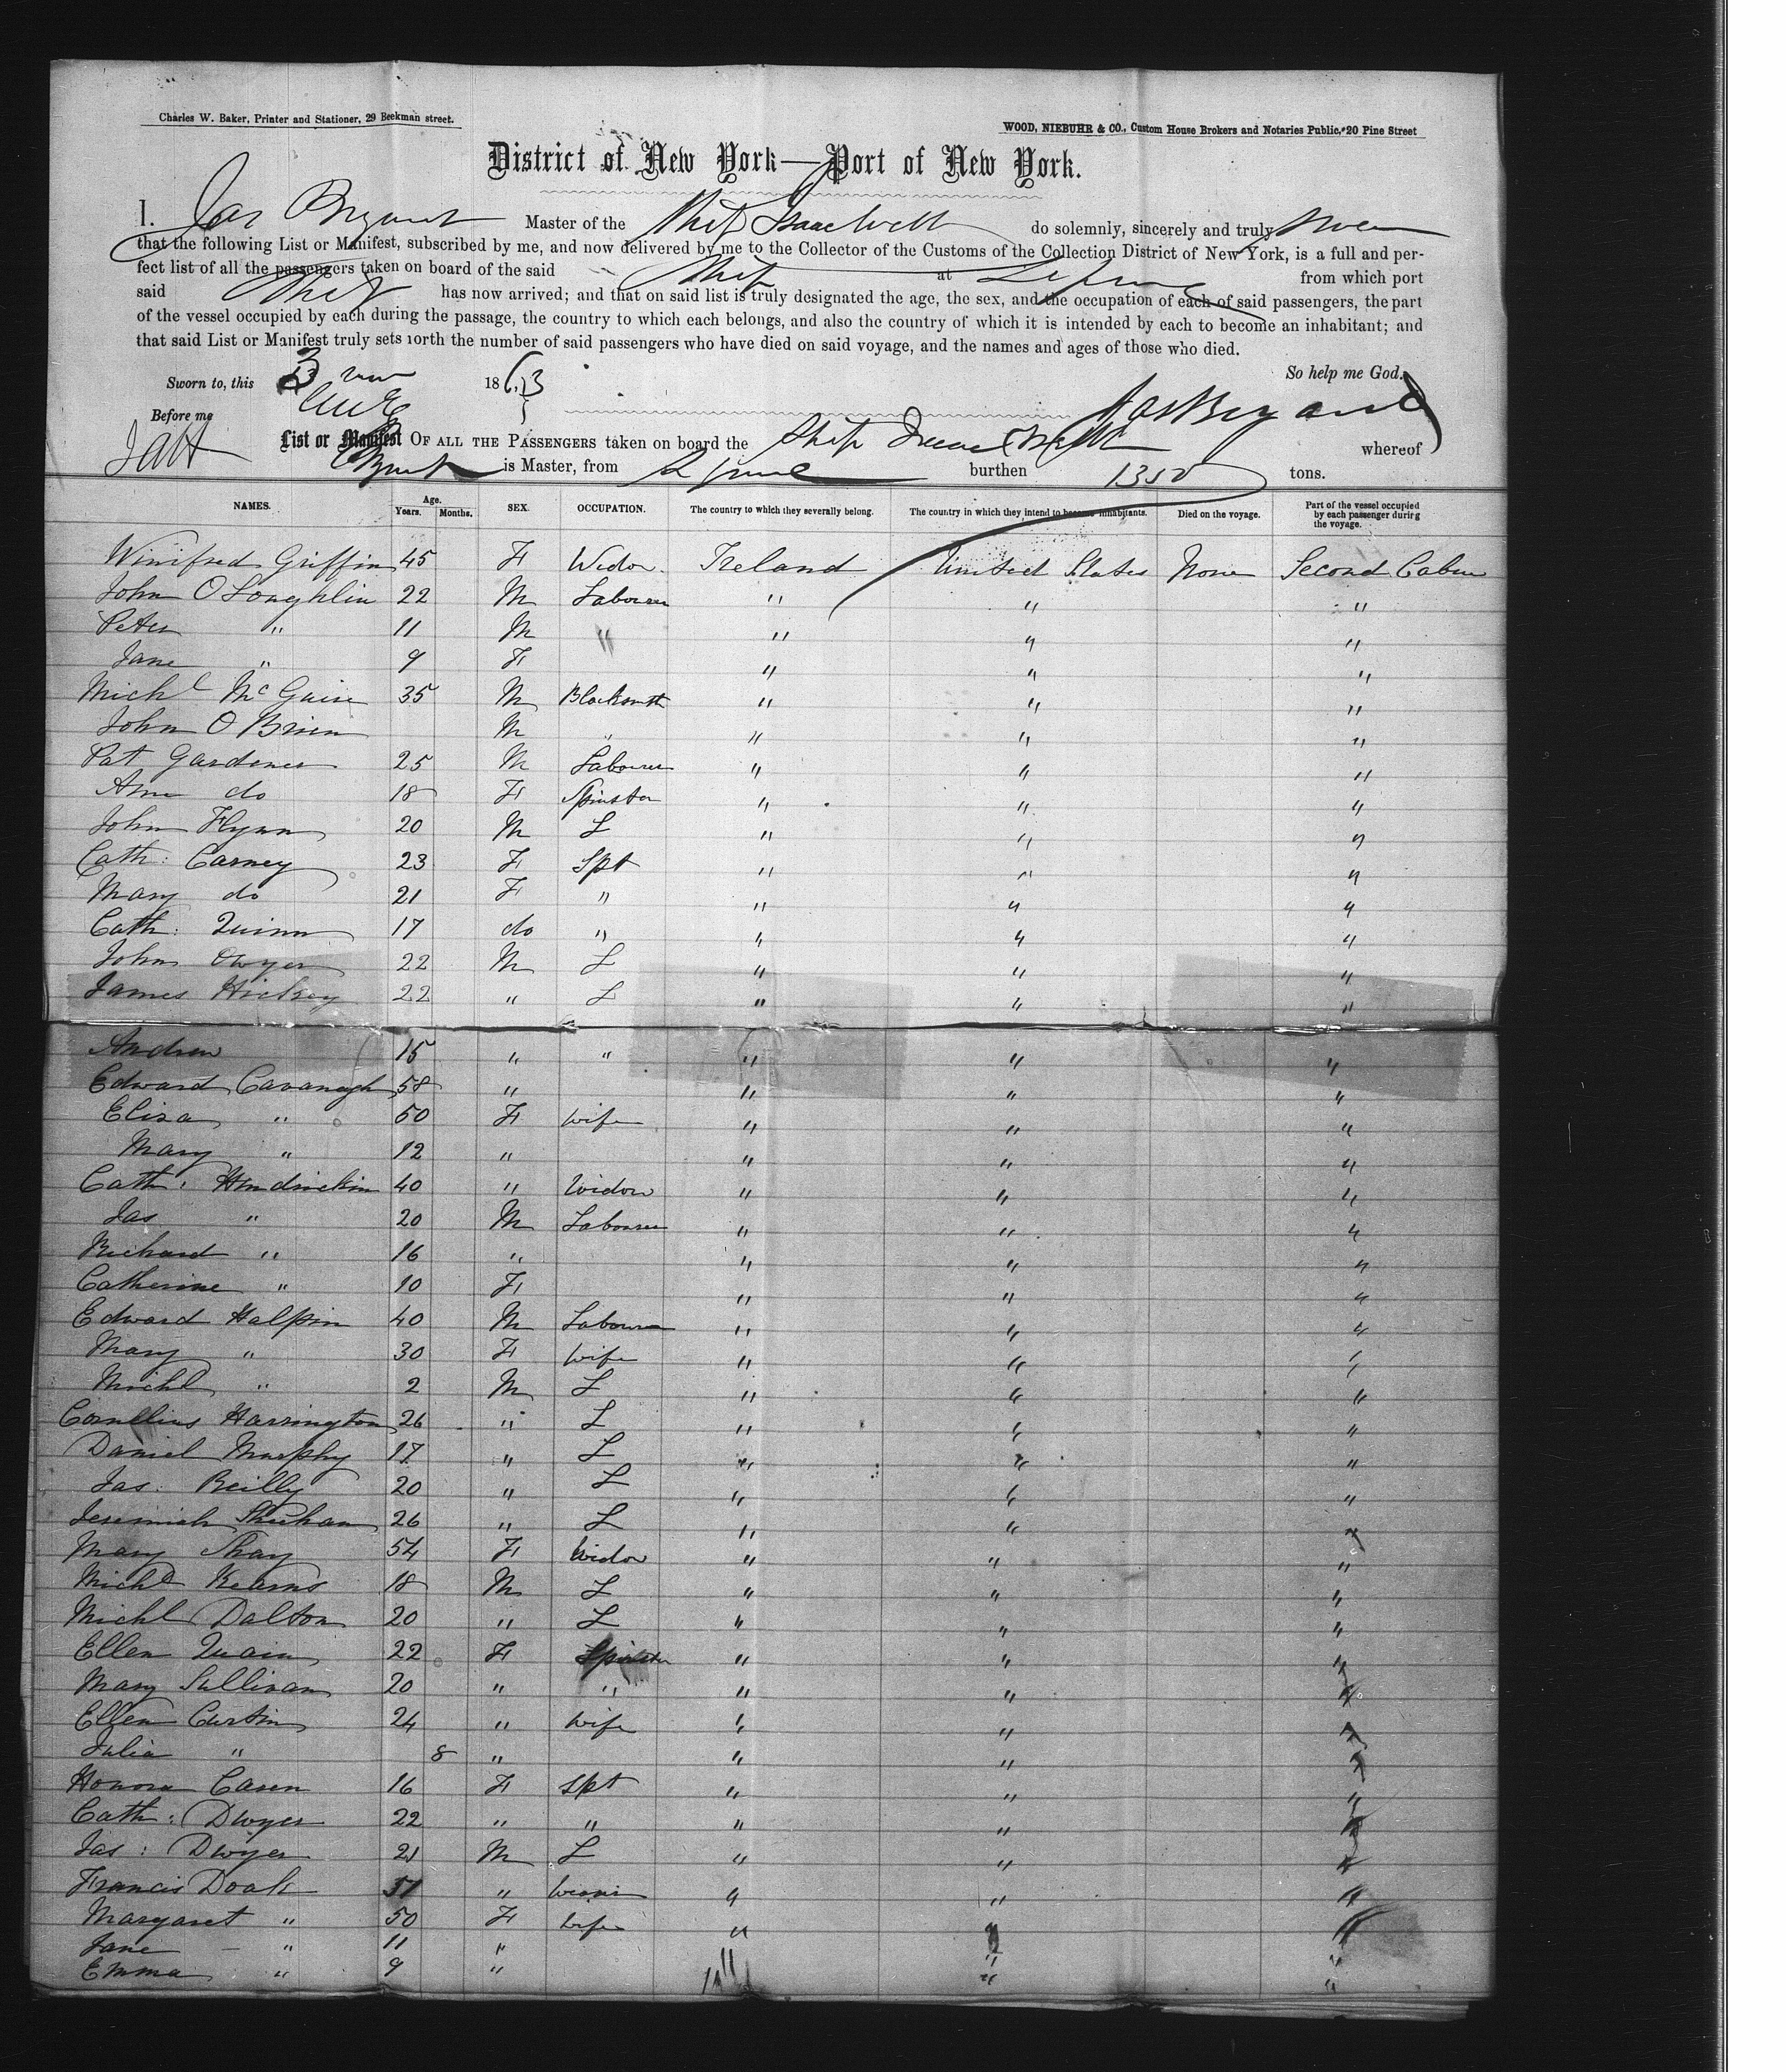 Charles W. Baker, Printer and Stationer, 29 Beekman street.
WOOD, NIEBUHR & CO., Custom House Brokers and Notaries Public, 20 Pine Street
District of New York—Port of New York.
I. Jas Bryant Master of the Ship Isaac Webb do solemnly, sincerely and truly swear
that the following List or Manifest, subscribed by me, and now delivered by me to the Collector of the Customs of the Collection District of New York, is a full and per-
fect list of all the passengers taken on board of the said Ship at L'pool from which port
said Ship has now arrived; and that on said list is truly designated the age, the sex, and the occupation of each of said passengers, the part
of the vessel occupied by each during the passage, the country to which each belongs, and also the country of which it is intended by each to become an inhabitant; and
that said List or Manifest truly sets forth the number of said passengers who have died on said voyage, and the names and ages of those who died.
Sworn to, this 3 1863 So help me God.
Before me Jas Bryant
List or Manifest OF ALL THE PASSENGERS taken on board the Ship Isaac Webb whereof
Bryant is Master, from L'pool burthen 1350 tons.
NAMES. Age. Years. Months. SEX. OCCUPATION. The country to which they severally belong. The country in which they intend to become inhabitants. Died on the voyage. Part of the vessel occupied by each passenger during the voyage.
Winifred Griffin 45 F Widow Ireland United States None Second Cabin
John O Loughlin 22 M Labourer " " "
Peter " 11 M " " " "
Jane " 9 F " " "
Michl McGuire 35 M Blacksmith " " "
John O Brien M " " " "
Pat Gardener 25 M Labourer " " "
Ann do 18 F Spinster " " "
John Flynn 20 M L " " "
Cath: Carney 23 F Spt " " "
Mary do 21 F " " " "
Cath: Quinn 17 do " " " "
John Dwyer 22 M L " " "
James Hickey 22 " L " " "
Andrew 15 " " " " "
Edward Cavanagh 58 " " " "
Eliza " 50 F Wife " " "
Mary " 12 " " " "
Cath: 40 " Widow " " "
Jas " 20 M Labourer " " "
Richard " 16 " " " "
Catherine " 10 F " " "
Edward Halpin 40 M Labourer " " "
Mary " 30 F Wife " " "
Michl " 2 M L " " "
Cornelius Harrington 26 " L " " "
Daniel Murphy 17 " L " " "
Jas: Reilly 20 " L " " "
Jeremiah Sheehan 26 " L " " "
Mary Shay 54 F Widow " " "
Michl Kearns 18 M L " " "
Michl Dalton 20 " L " " "
Ellen Quain 22 F Spinster " " "
Mary Sullivan 20 " " " " "
Ellen Curtin 24 " Wife " " "
Julia " 8 " " " "
Honora Casen 16 F Spt " " "
Cath: Dwyer 22 " " " " "
Jas: Dwyer 21 M L " " "
Francis Doak 51 " " " "
Margaret " 50 F Wife " " "
Jane " 11 " " "
Emma " 9 " " " "